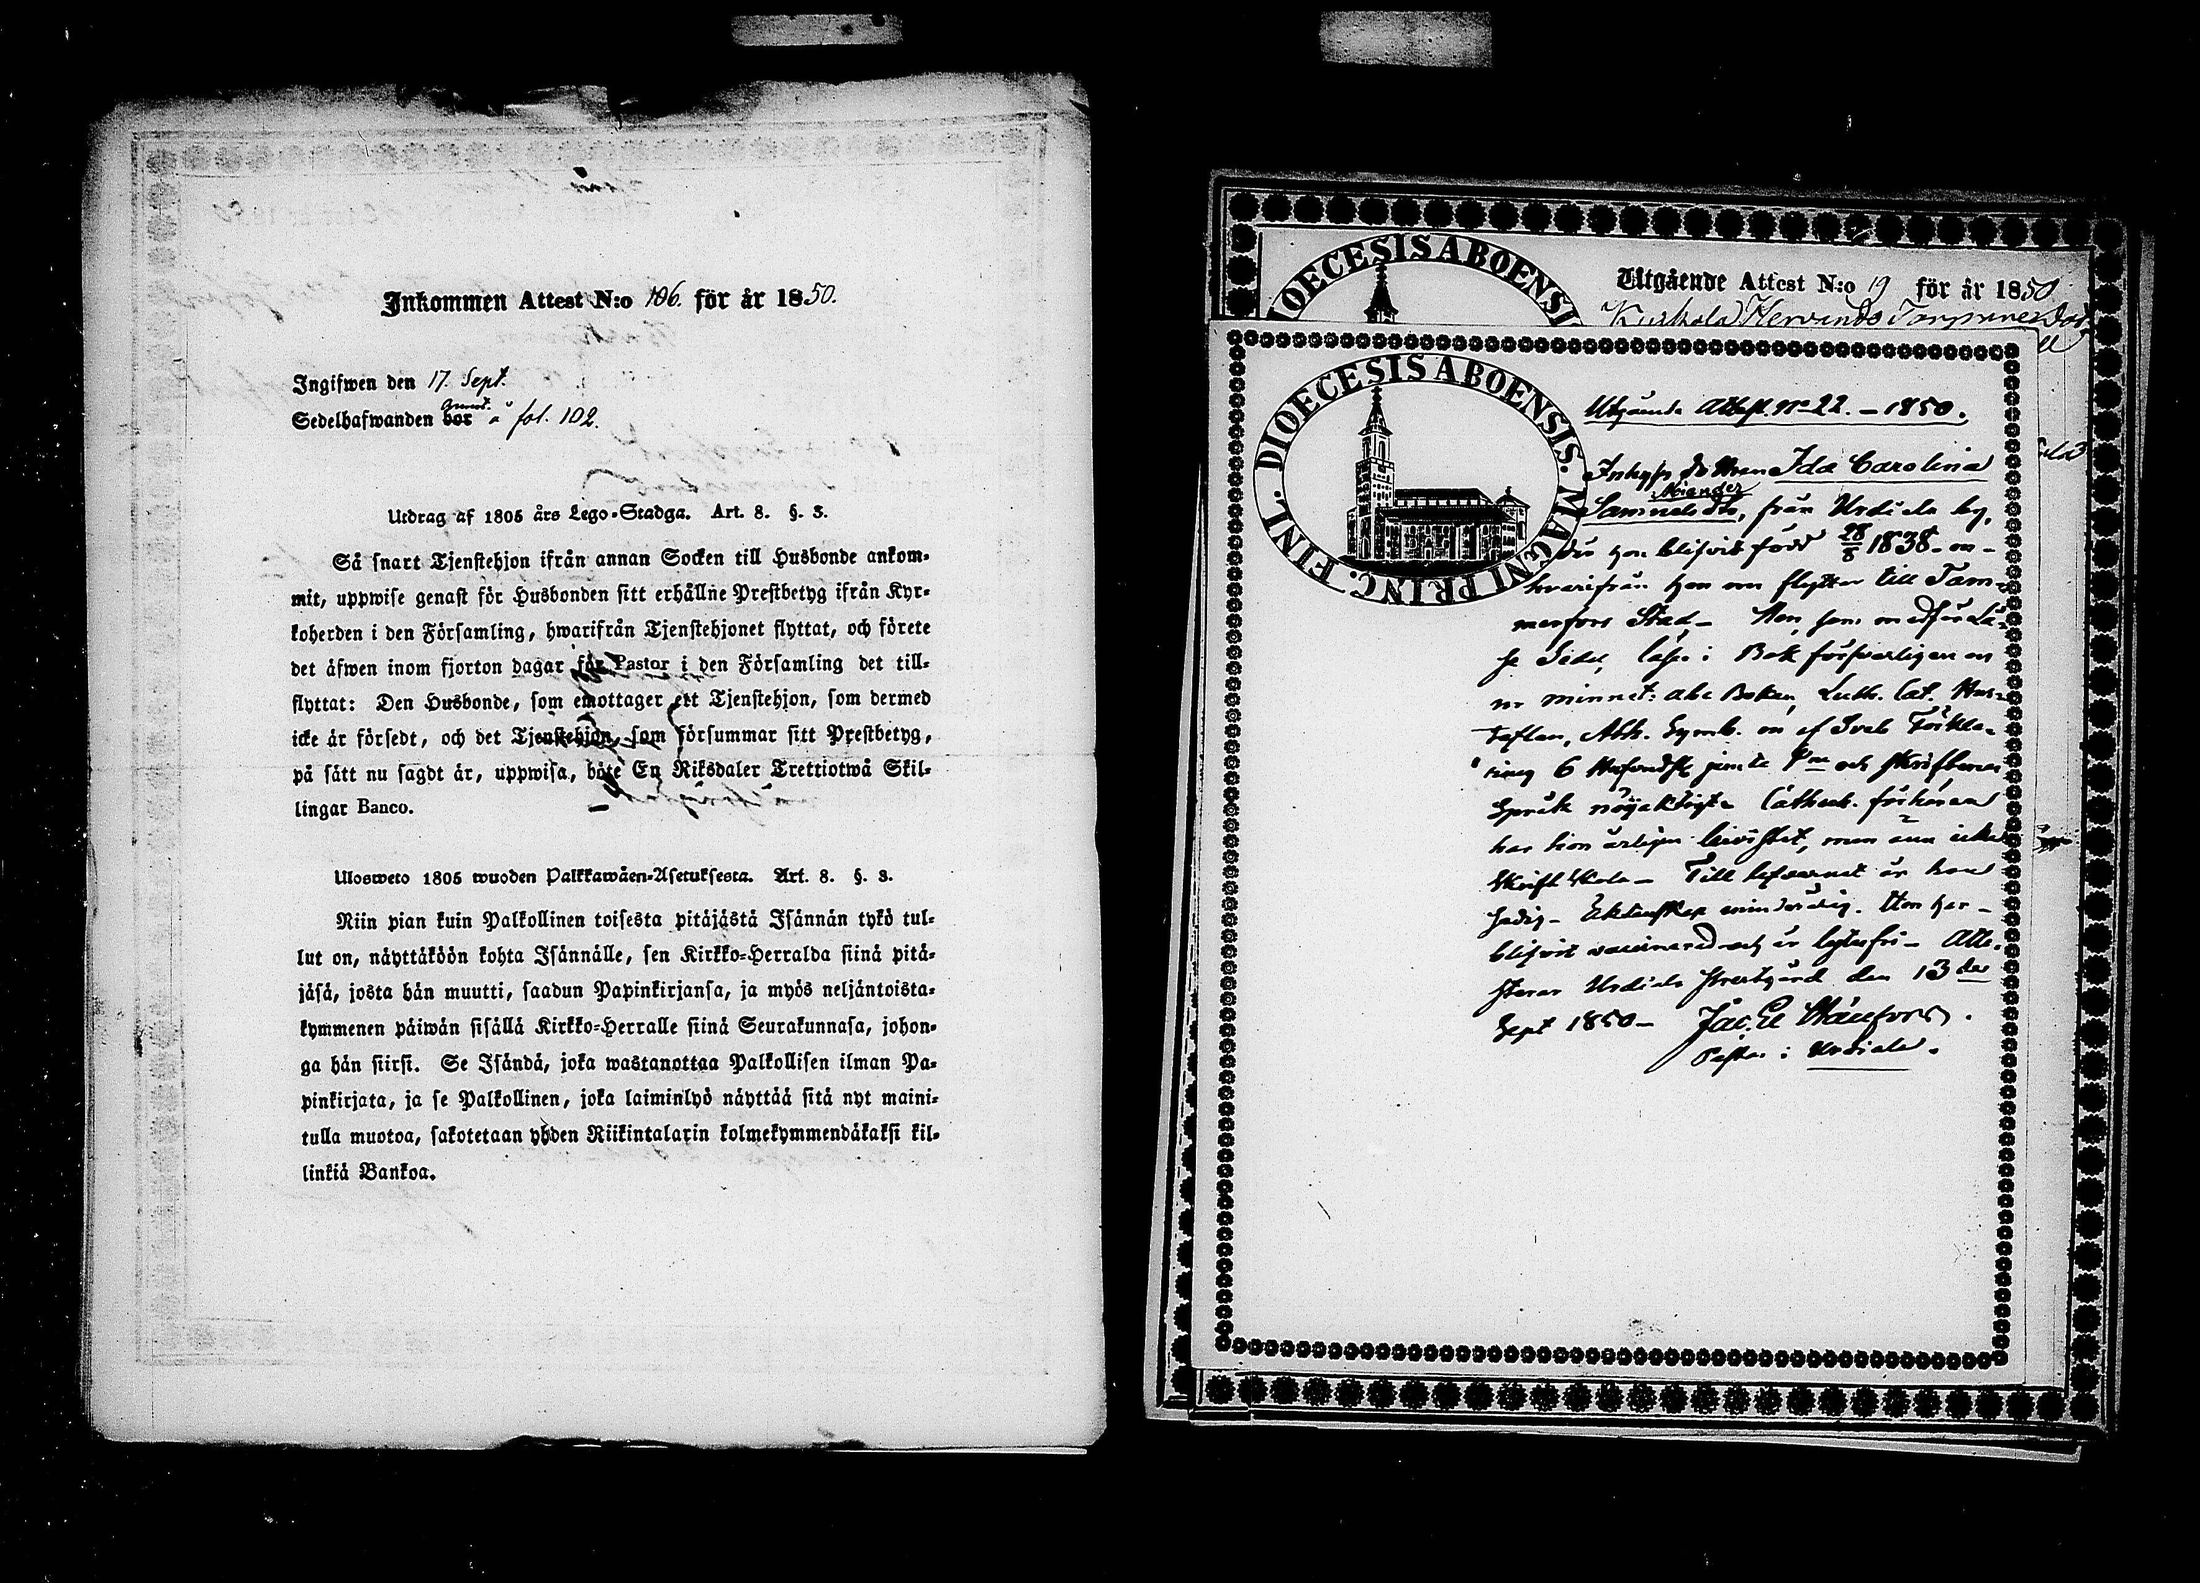 Inkommen Attest N:o 106. för år 1850.
Ingifwen den 17. Sept.
Sedelhafwanden bor annot. å fol. 102.
Utdrag af 1805 års Lego-Stadga. Art. 8. §. 3.
Så snart Tjenstehjon ifrån annan Socken till Husbonde ankom-
mit, uppwise genast för Husbonden sitt erhållne Prestbetyg ifrån Kyr-
koherden i den Församling, hwarifrån Tjenstehjonet flyttat, och förete
det äfwen inom fjorton dagar för Pastor i den Församling det till-
flyttat: Den Husbonde, som emottager ett Tjenstehjon, som dermed
icke är försedt, och det Tjenstehjon, som försummar sitt Prestbetyg,
på sätt nu sagdt är, uppwisa, böte En Riksdaler Trettiotwå Skil-
lingar Banco.
Ulosweto 1805 wuoden Palkkawäen-Asetuksesta. Art. 8. §. 3.
Niin pian kuin Palkollinen toisesta pitäjästä Isännän tykö tul-
lut on, näyttäköön kohta Isännälle, sen Kirkko-Herralda siinä pitä-
jäsä, josta hän muutti, saadun Papinkirjansa, ja myös neljäntoista-
kymmenen päiwän sisällä Kirkko-Herralle siinä Seurakunnasa, johon-
ga hän siirsi. Se Isändä, joka wastanottaa Palkollisen ilman Pa-
pinkirjata, ja se Palkollinen, joka laiminlyö näyttää sitä nyt maini-
tulla muotoa, sakotetaan yhden Riikintalarin kolmekymmendäkaksi kil-
linkiä Bankoa.
DIOECESIS ABOENSI
Utgående Attest N:o 19 för år 1850
DIOECESIS ABOENSIS. MAGNI PRINC. FINL.
Utgående Attest. No 22. – 1850.
Inhyses Dottren Ida Carolina
Samuelsdr, från Urdiala by,
der hon blifvit född 28/8 1838 –
hvarifrån hon nu flyttar till Tam-
merfors Stad – Hon, som
läser i Bok försvarligen
minnet: abc Boken, Luth. Cat. Hus-
taflan, Ath. Symb. Sveb. Förkla-
ring 6 jemte och skriftenes
Språk förhören
har hon årligen bevistat, men än icke
Skriftskola – Till är hon
ledig – Äktenskap minderårig. Hon har –
blifvit vaccinerad och är lytesfri – Atte-
sterar Urdiala Prestgård den 13de
Sept 1850 –
Pastor i Urdiala.